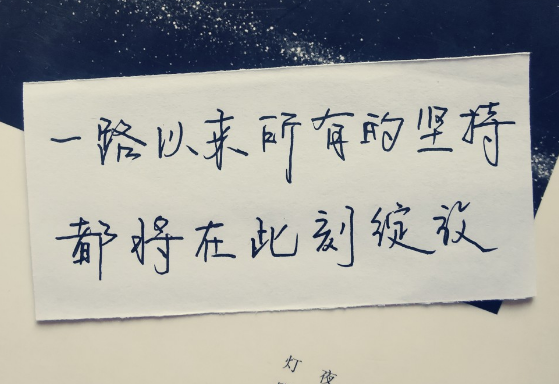 一路以来所有的坚持
都将在此刻绽放
灯 夜